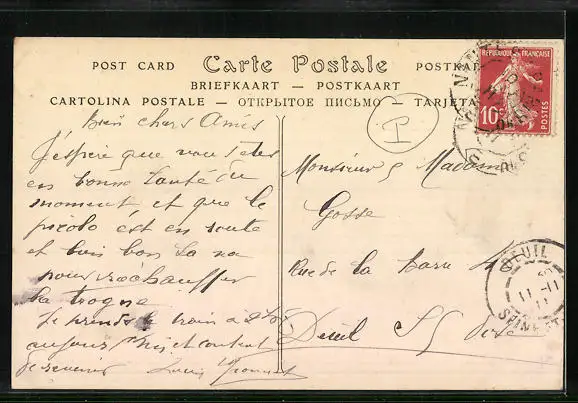 POST CARD Carte Postale POSTKA
BRIEFKAART — POSTKAART
CARTOLINA POSTALE — ОТКРЫТОЕ ПИСЬМО — TARJETA
REPUBLIQUE FRANÇAISE
10
POSTES
Bien chers Amis
J'espère que vous êtes
en bonne santé du
moment et que le
picolo est en route
et bien bon ça va
vous réchauffer
la trogne
Je prends le train à
content
de revenir Louis
Monsieur & Madame
Gosse
Rue de la Barre
Deuil S/ Oise
DEUIL
11 -11
11
SEINE-ET-